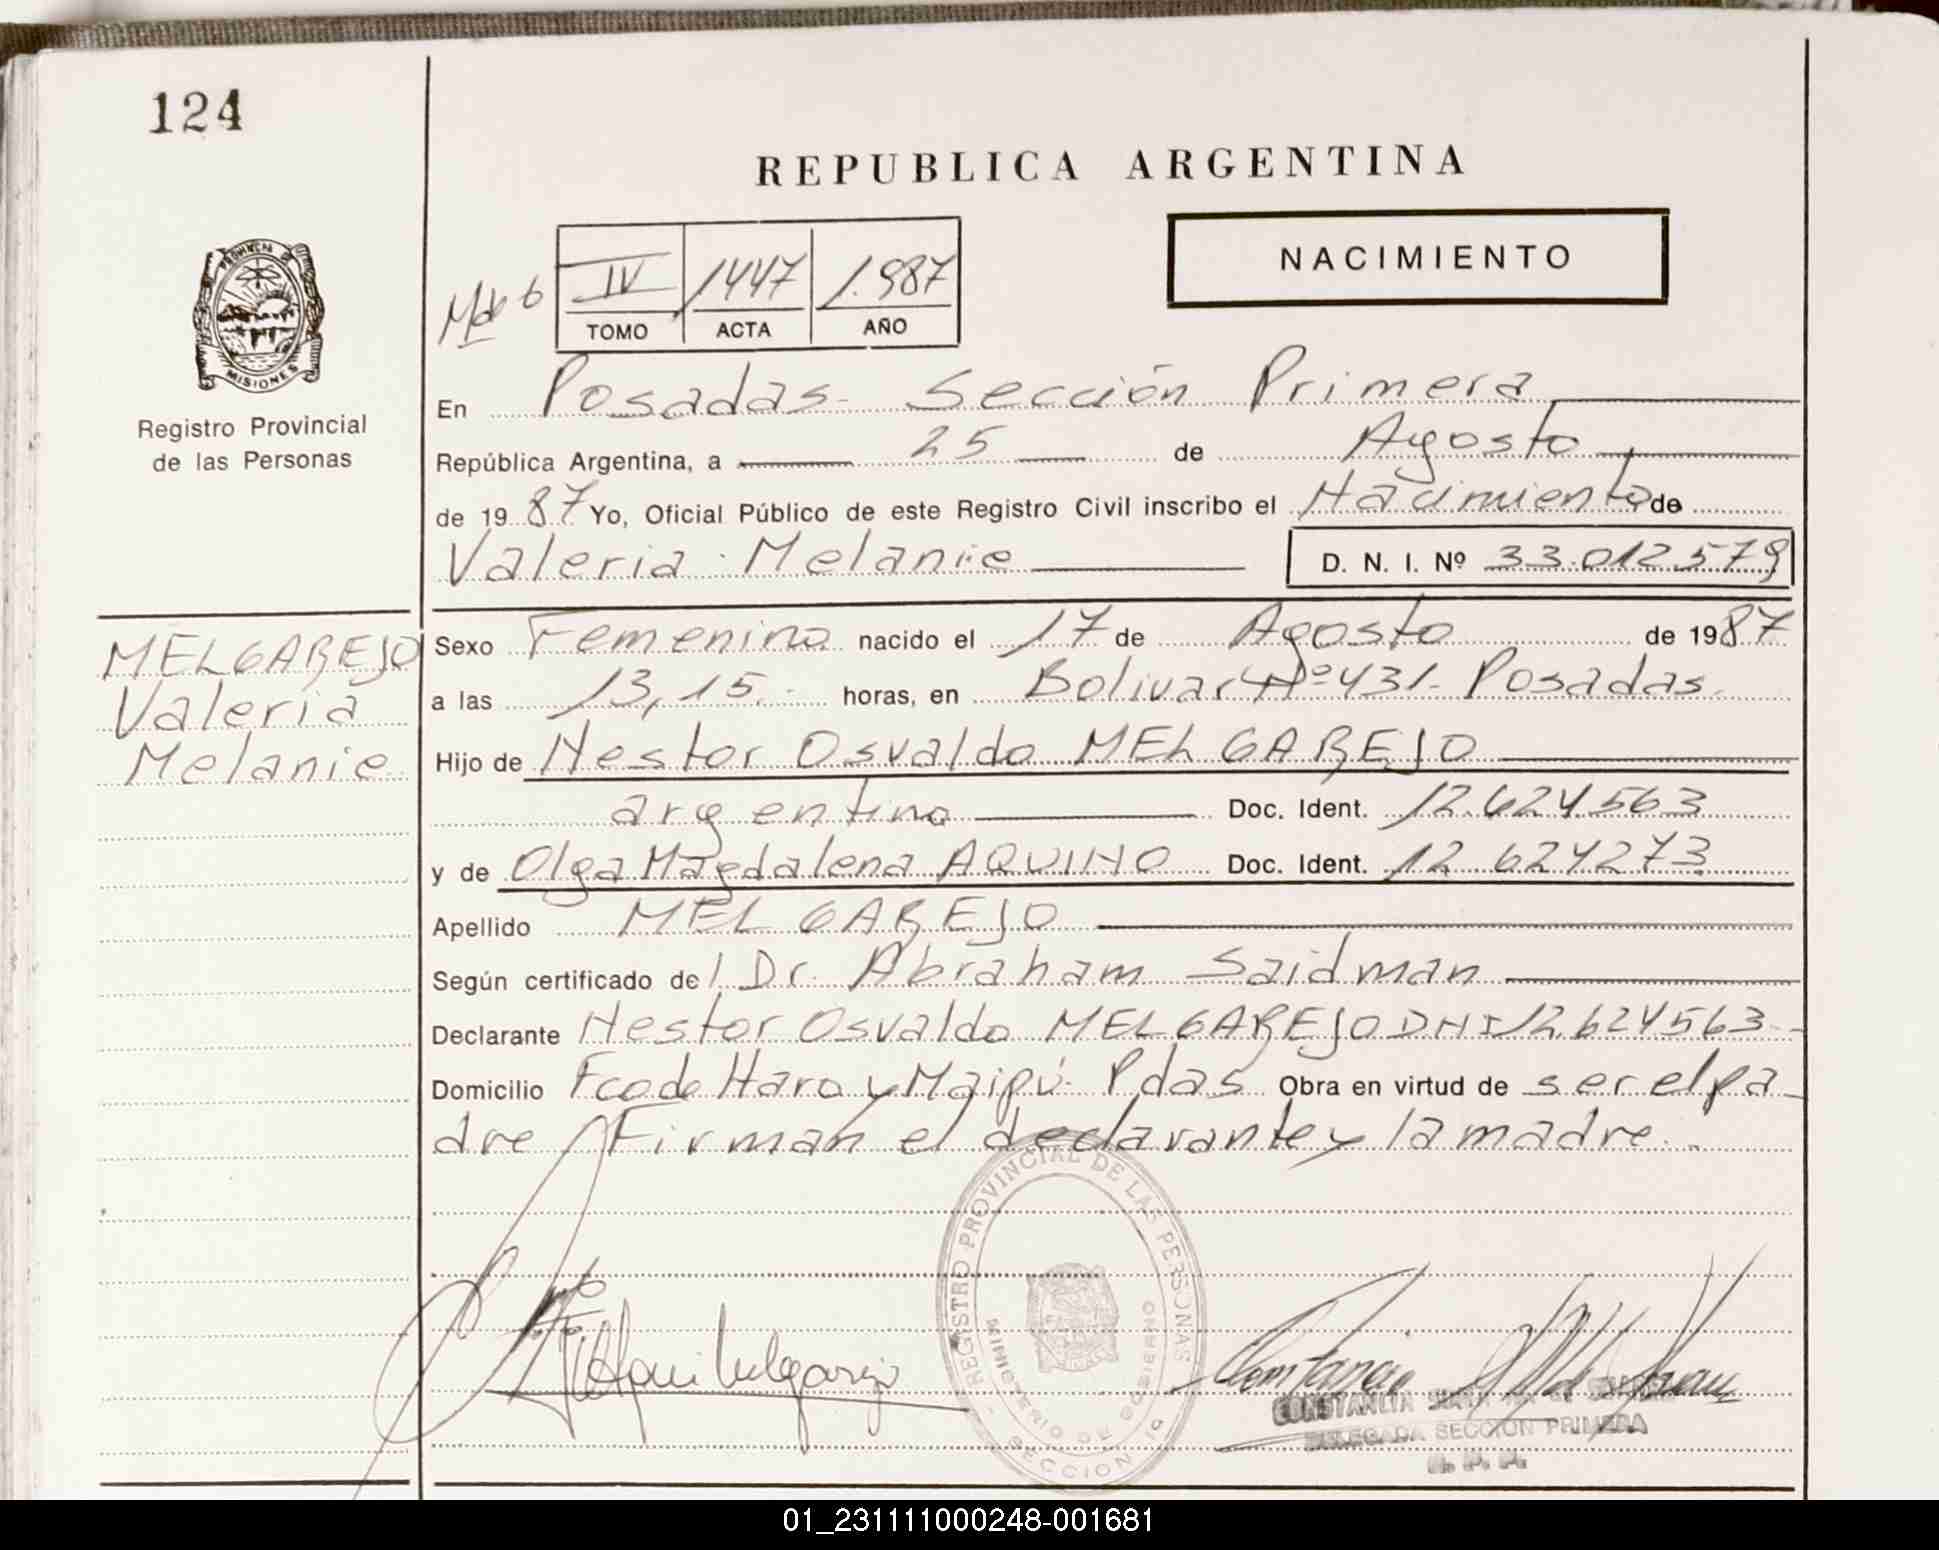 124
REPUBLICA ARGENTINA
NACIMIENTO
IV 1447 1.987
TOMO ACTA AÑO
PROVINCIA
MISIONES
Registro Provincial
de las Personas
En Posadas- Sección Primera
República Argentina, a 25 de Agosto
de 1987 Yo, Oficial Público de este Registro Civil inscribo el Nacimiento de
Valeria Melanie D. N. I. Nº 33.012579
MELGAREJO
Valeria
Melanie
Sexo Femenino nacido el 17 de Agosto de 1987
a las 13,15.- horas, en Bolivar Nº 431- Posadas.
Hijo de Nestor Osvaldo MELGAREJO
argentino Doc. Ident. 12.624.563
y de Olga Magdalena AQUINO Doc. Ident. 12.624273
Apellido MELGAREJO
Según certificado del Dr. Abraham Saidman
Declarante Nestor Osvaldo MELGAREJO DNI 12.624563.-
Domicilio Fco de Haro y Maipú- Pdas Obra en virtud de ser el pa
dre Firman el declarante y la madre.-
REGISTRO PROVINCIAL DE LAS PERSONAS
MINISTERIO DE GOBIERNO
SECCION 1a
CONSTANCIA
DELEGADA SECCION PRIMERA
R. P. P.
01_231111000248-001681